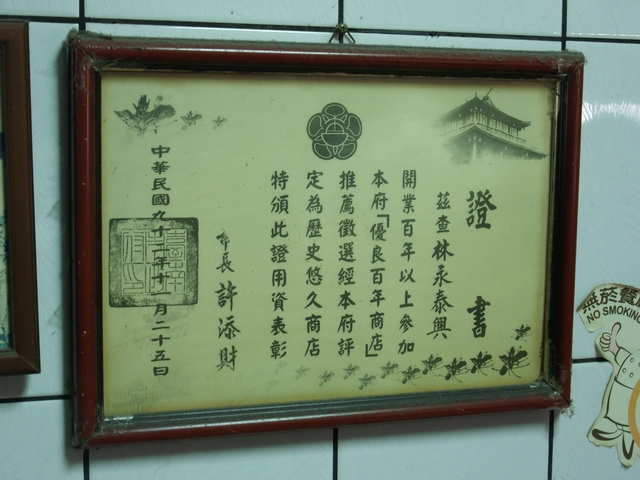 證書
茲查林永泰興
開業百年以上參加
本府「優良百年商店」
推薦徵選經本府評
定為歷史悠久商店
特頒此證用資表彰
市長 許添財
中華民國九十二年十月二十五日
無菸餐
NO SMOKING